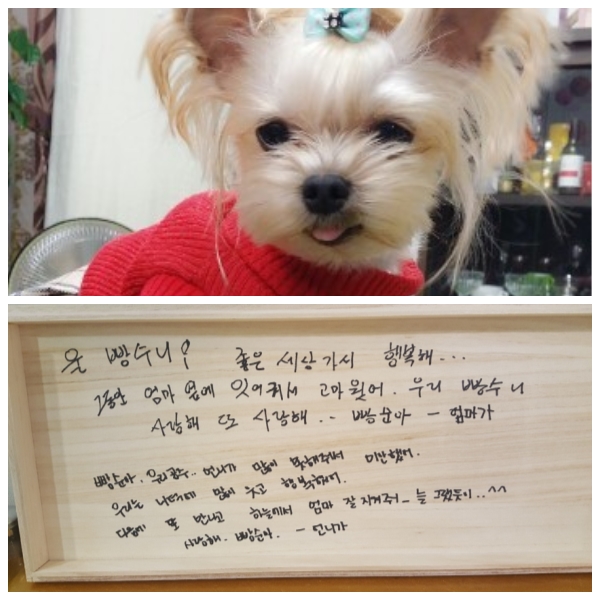 울 빵수니! 좋은 세상가서 행복해...
그동안 엄마 옆에 있어줘서 고마웠어. 우리 빵수니
사랑해 또 사랑해... 빵순아 - 엄마가
빵순아. 우리 .. 언니가 많이 못해줘서 미안했어.
우리는 너땜에 많이 웃고 행복했어.
다음에 또 만나고 하늘에서 엄마 잘 지켜줘- 늘 그랬듯이..^^
사랑해. 빵순아. - 언니가